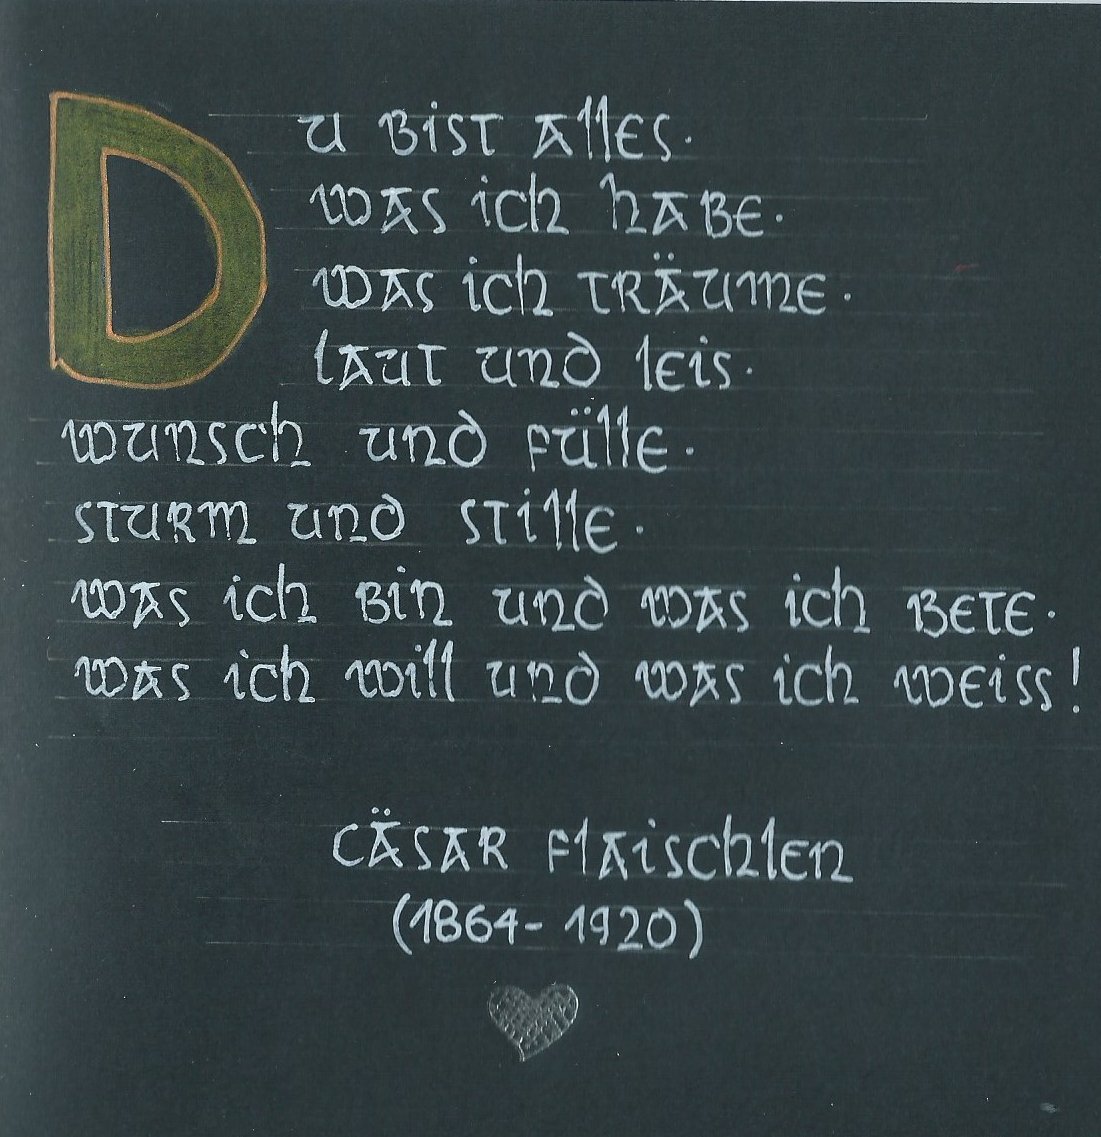 DU BIST ALLES·
WAS ICH HABE·
WAS ICH TRÄUME·
LAUT UND LEIS·
WUNSCH UND FÜLLE·
STURM UND STILLE·
WAS ICH BIN UND WAS ICH BETE·
WAS ICH WILL UND WAS ICH WEISS!
CÄSAR FLAISCHLEN
(1864-1920)